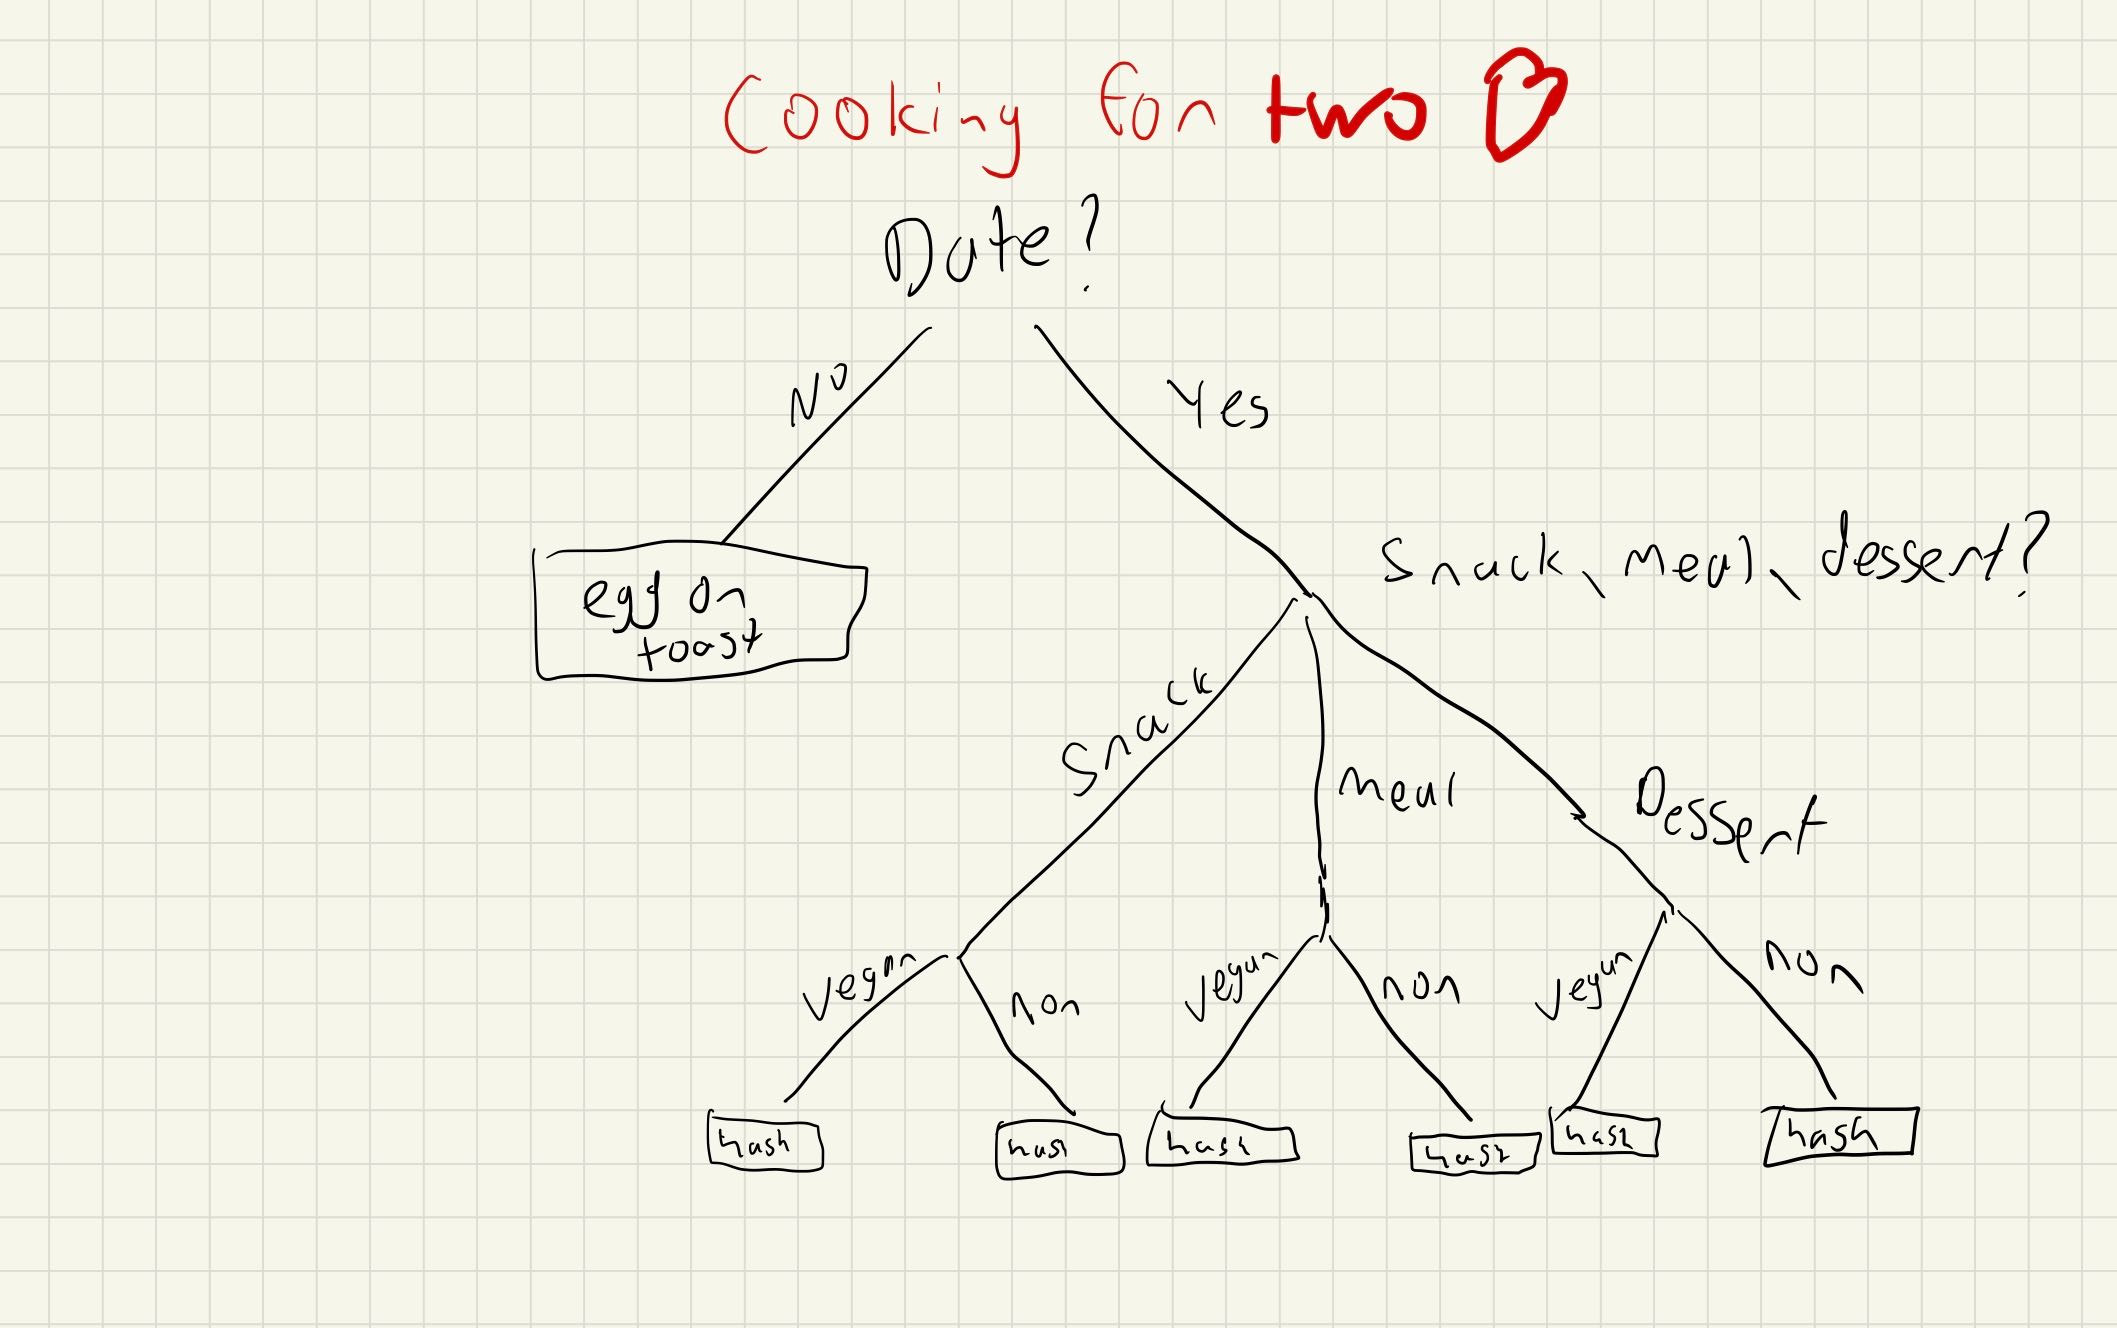 Cooking for two
Date?
No
Yes
Snack, meal, dessert?
egg on
toast
Snack
meal
Dessert
vegan
non
vegan
non
vegan
non
hash
hash
hash
hash
hash
hash